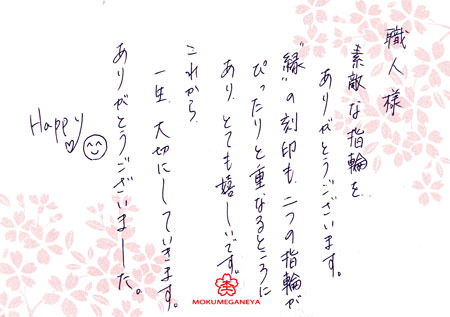 職人様
素敵な指輪を
ありがとうございます。
"縁"の刻印も、二つの指輪が
ぴったりと重なるところに
あり、とても嬉しいです。
これから、
一生、大切にしていきます。
ありがとうございました。
Happy
MOKUMEGANEYA